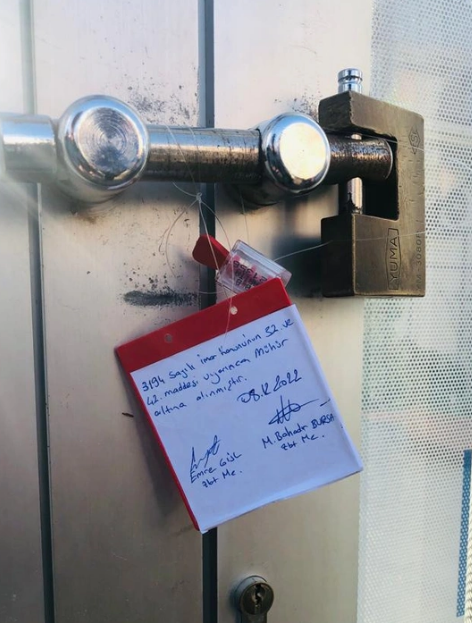 3194 Sayılı imar Kanununun 32. ve
42. maddesi uyarınca Mühür
altına alınmıştır.
08.12.2022
M. Bahadır BURSA
Zbt Me.
Emre GÜL
Zbt Me.
YUMA